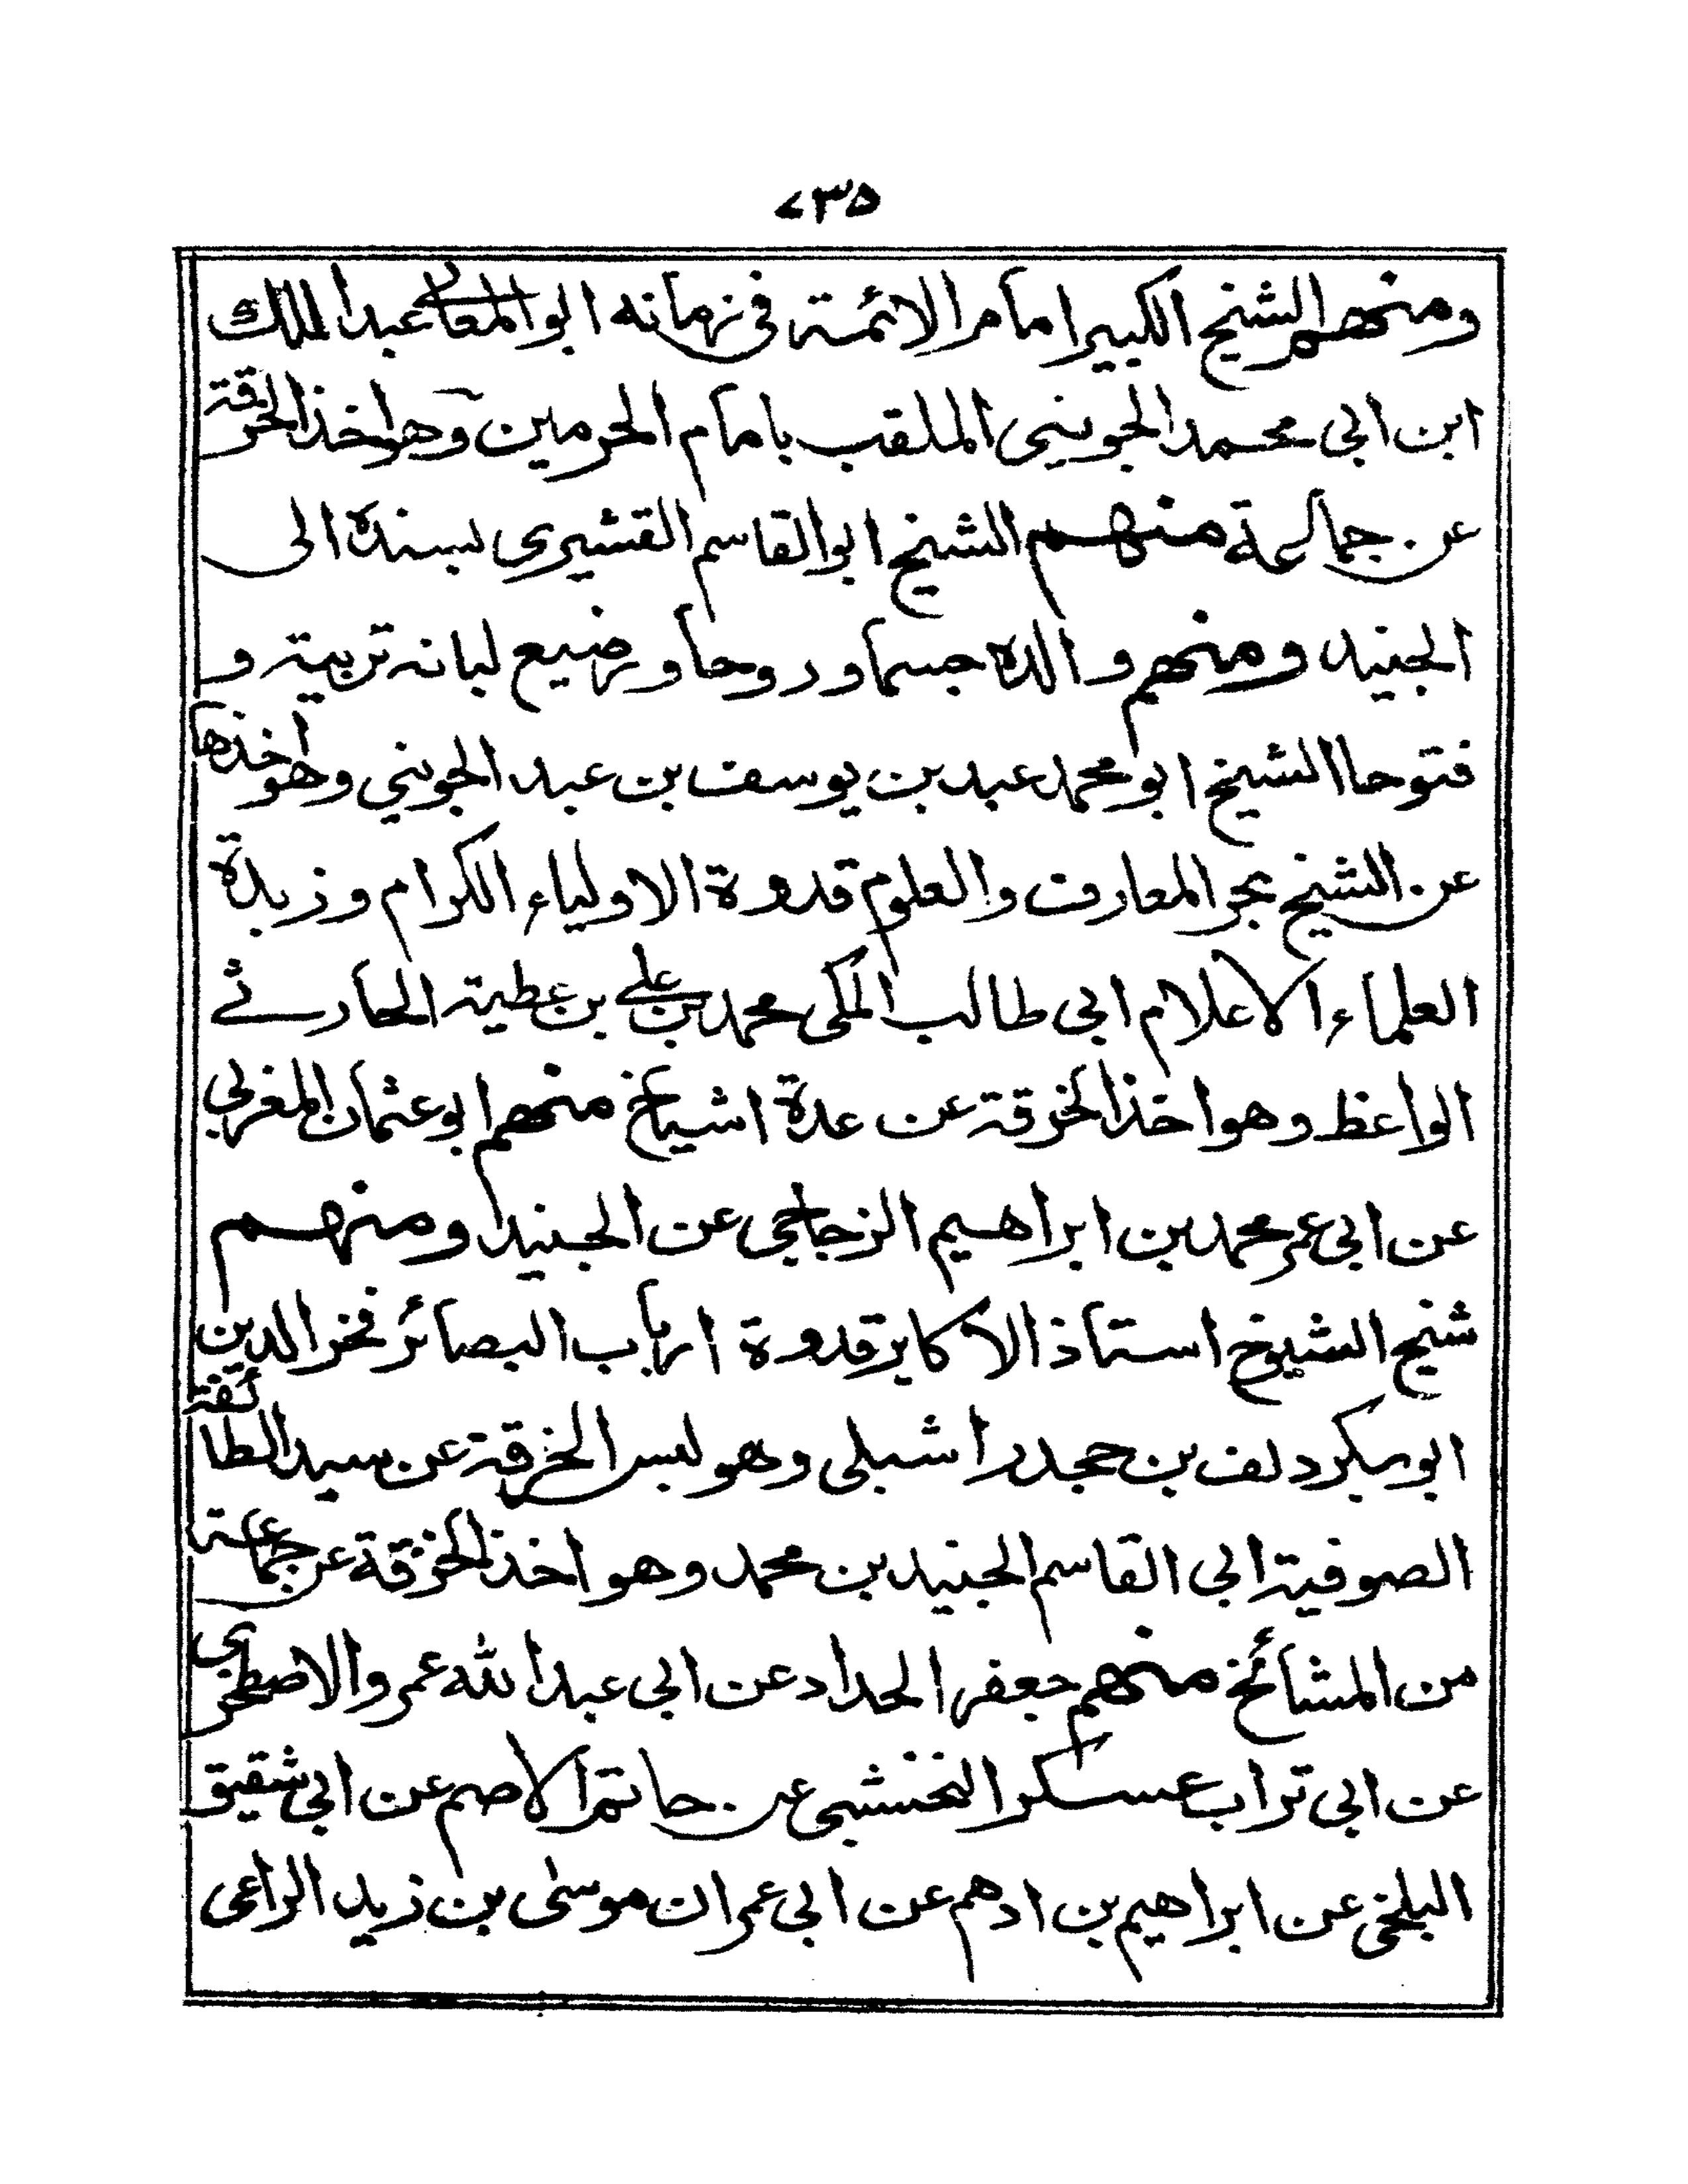 ۷۳۵
ومنهم الشيخ الكبير امام الائمة في زمانه ابو المعالي عبد الملك
ابن ابي محمد الجويني الملقب بامام الحرمين وهو اخذ الخرقة
عن جماعة منهم الشيخ ابو القاسم القشيرى بسنده الى
الجنيد ومنهم والده جسما وروحا ورضيع لبانه تربية و
فتوحا الشيخ ابو محمد عبد بن يوسف بن عبد الجويني وهو اخذها
عن الشيخ بحر المعارف والعلوم قدوة الاولياء الكرام وزبدة
العلماء الاعلام ابي طالب المكى محمد بن علي بن عطية الحارثي
الواعظ وهو اخذ الخرقة عن عدة اشياخ منهم ابو عثمان المغربي
عن ابي عمر محمد بن ابراهيم الزجاجي عن الجنيد ومنهم
شيخ الشيوخ استاذ الاكابر قدوة ارباب البصائر فخر الدين
ابو بكر دلف بن جحدر اشبلى وهو لبس الخرقة عن سيد الطائفة
الصوفية ابي القاسم الجنيد بن محمد وهو اخذ الخرقة عن جماعة
من المشائخ منهم جعفر الحداد عن ابي عبد الله عمرو الاصطخرى
عن ابي تراب عسكر النخشبى عن حاتم الاصم عن ابي شقيق
البلخى عن ابراهيم بن ادهم عن ابي عمران موسى بن زيد الراعى